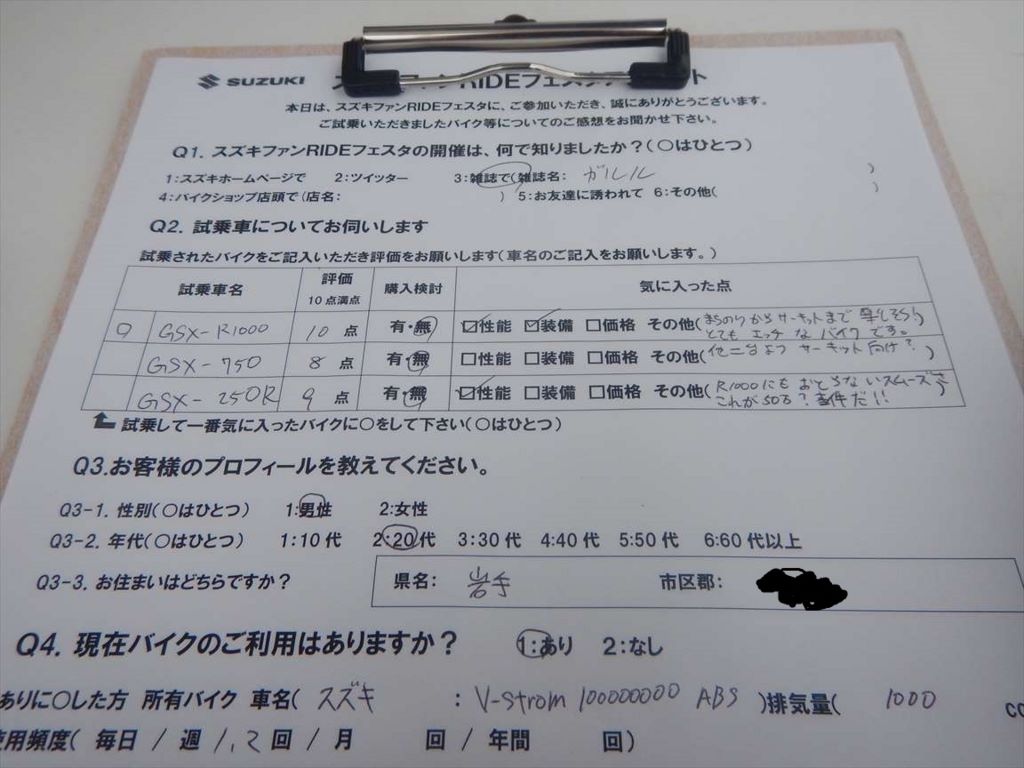 SUZUKI RIDEフェスタ
本日は、スズキファンRIDEフェスタに、ご参加いただき、誠にありがとうございます。
ご試乗いただきましたバイク等についてのご感想をお聞かせ下さい。
Q1. スズキファンRIDEフェスタの開催は、何で知りましたか?(○はひとつ)
1:スズキホームページで 2:ツイッター 3:雑誌で(雑誌名: ガルル )
4:バイクショップ店頭で(店名: ) 5:お友達に誘われて 6:その他( )
Q2. 試乗車についてお伺いします
試乗されたバイクをご記入いただき評価をお願いします(車名のご記入をお願いします。)
試乗車名 評価 購入検討 気に入った点
10点満点
○ GSX-R1000 10 点 有・無 ☑性能 ☑装備 □価格 その他(まちのりからサーキットまで楽しそう!)
とても エッチ なバイクです。
GSX-750 8 点 有・無 □性能 □装備 □価格 その他(他二台よりサーキット向け? )
GSX-250R 9 点 有・無 ☑性能 □装備 □価格 その他(R1000にもおとらないスムーズさ)
これが50万?事件だ!!
試乗して一番気に入ったバイクに○をして下さい(○はひとつ)
Q3.お客様のプロフィールを教えてください。
Q3-1. 性別(○はひとつ) 1:男性 2:女性
Q3-2. 年代(○はひとつ) 1:10代 2:20代 3:30代 4:40代 5:50代 6:60代以上
Q3-3. お住まいはどちらですか? 県名: 岩手 市区郡:
Q4. 現在バイクのご利用はありますか? 1:あり 2:なし
ありに○した方 所有バイク 車名( スズキ : V-strom 100000000 ABS )排気量( 1000 cc
使用頻度( 毎日 / 週 1,2 回 / 月 回 / 年間 回)